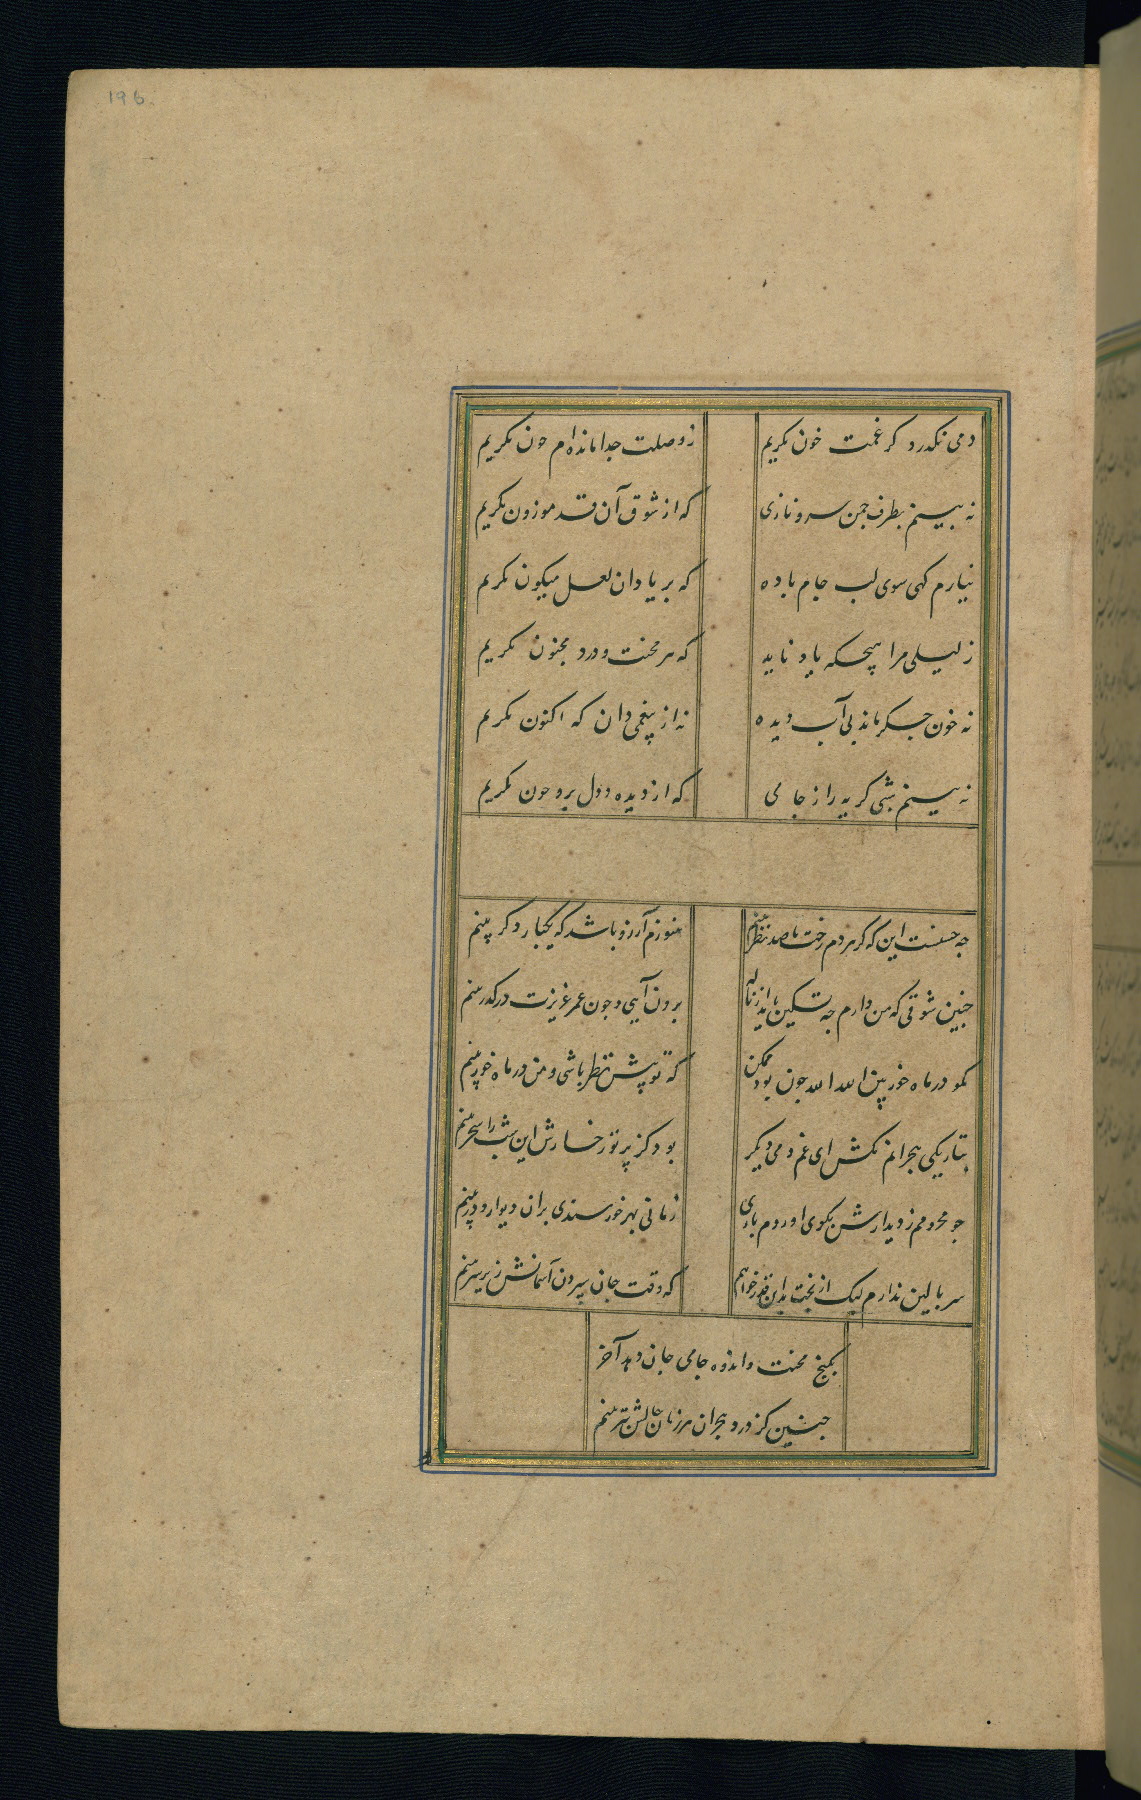 196
دمی نکذرد کر غمت خون نکریم
ز وصلت جدا مانده‌ام چون نکریم
نه بینم بطرف چمن سرو نازی
که از شوق آن قد موزون نکریم
نیارم کهی سوی لب جام باده
که بر یاد آن لعل میکون نکریم
ز لیلی مرا هیچکه یاد ناید
که بر محنت و درد مجنون نکریم
نه خون جکر ماند بی آب دیده
نه از بیغمی دان که اکنون نکریم
نه بینم شبی کریه راز جامی
که از دیده و دل برو خون نکریم
چه حسنست این که کر هر دم رخت با صد نظر بینم
هنوزم آرزو باشد که یکبار دکر بینم
چنین شوقی که من دارم چه تسکین یابد از نا له
برون آیی و چون عمر عزیزت در کذر بینم
مکو در ماه خور بین الله الله چون بود ممکن
که تو پیش نظر باشی و من در ماه خور بینم
بتاریکی هجرانم مکش ای غم دمی دیکر
بود کز پرتو رخسارش این شب را سحر بینم
چو محرومم ز دیدارش بکوی او روم باری
زمانی بهر خورسندی بران دیوار و در بینم
سر بالین ندارم لیک از بخت بد این قدر خواهم
که وقت جان سپردن آستانش زیر سر بینم
بکنج محنت و اندوه جامی جان دهد آخر
چنین کز درد هجران هر زمان حالش بتر بینم